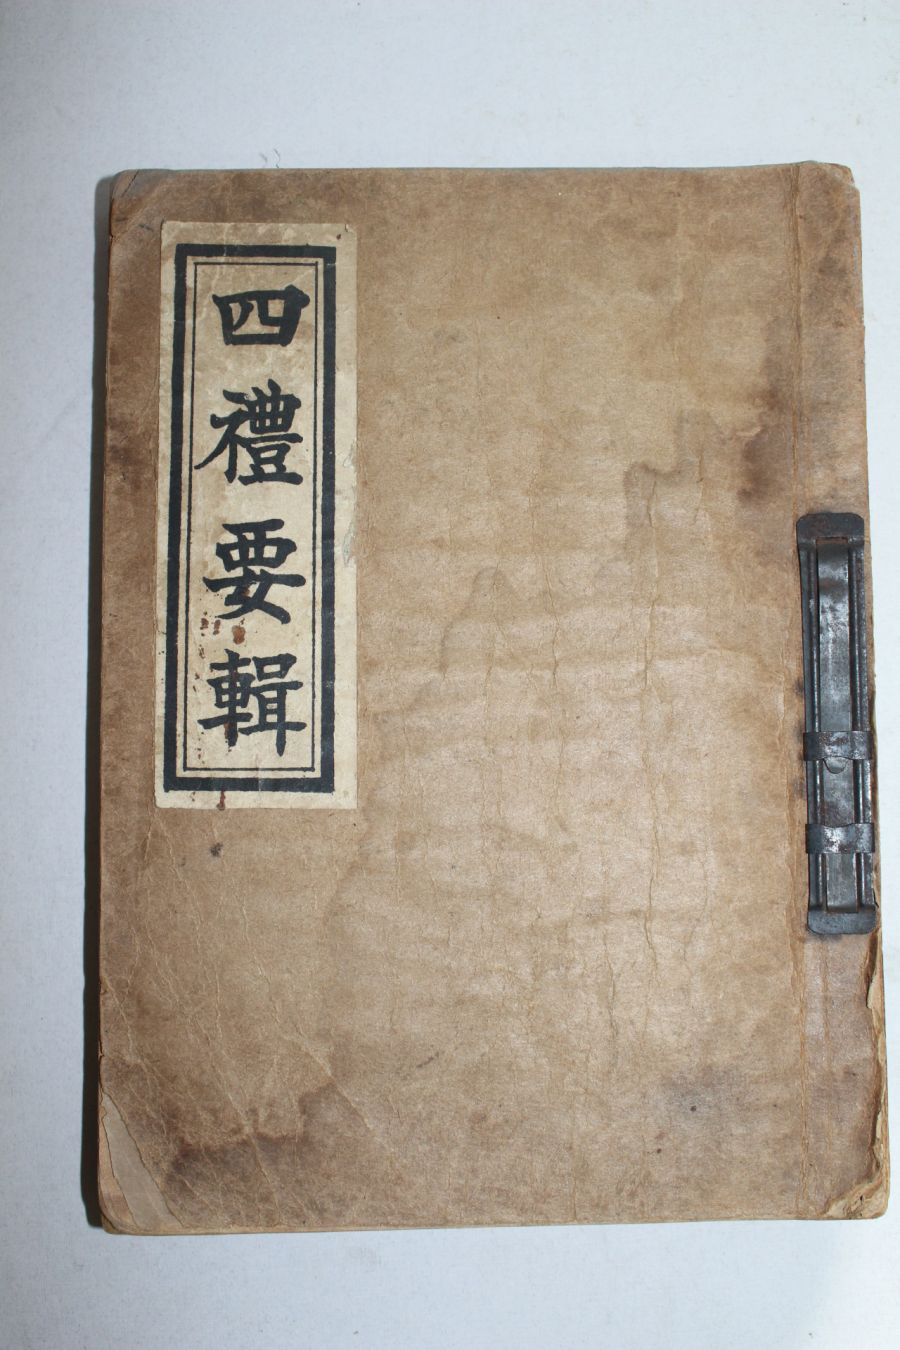 四禮要輯